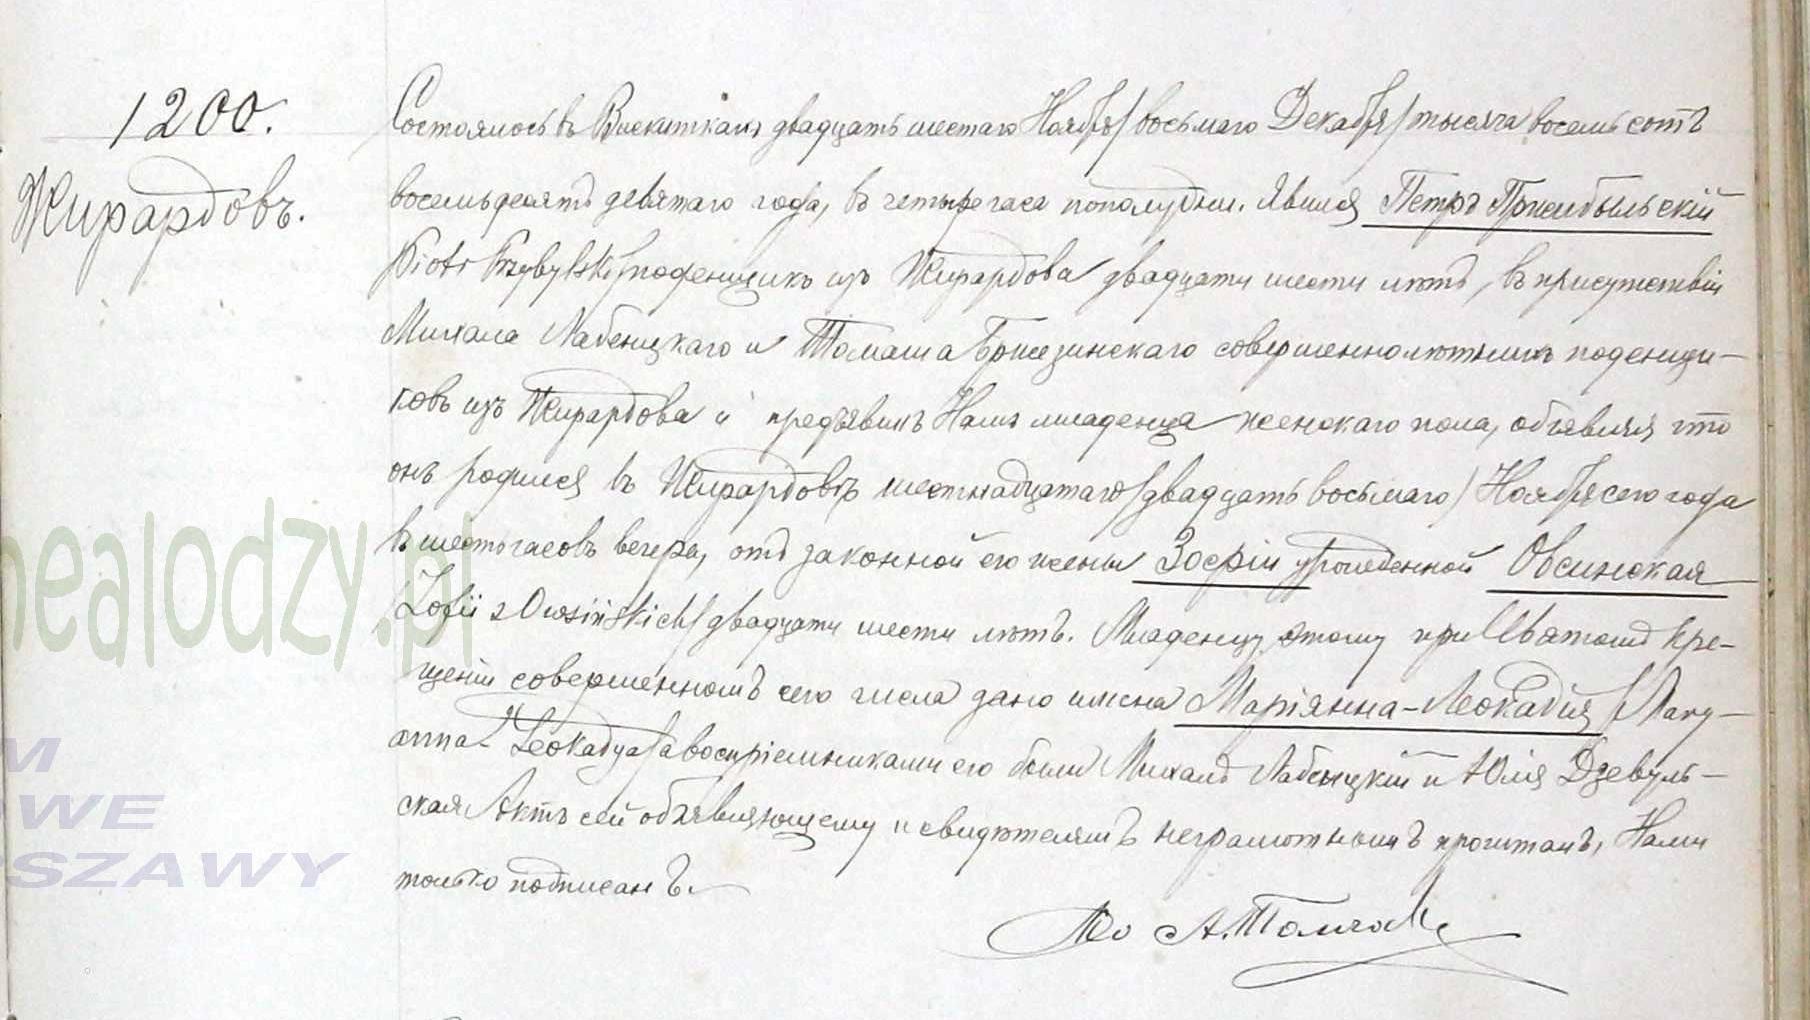 1200.
Жирардовъ.
Состоялось въ Вискиткахъ двадцать шестаго Ноября /восьмаго Декабря/ тысяча восемьсотъ
восемьдесятъ девятаго года, въ четыре часа пополудни. Явился Петръ Пржибыльскій
/Piotr Przybylski/ поденщикъ изъ Жирардова двадцати шести лѣтъ, въ присутствіи
Михала Лабенцкаго и Томаша Бржезинскаго совершеннолѣтнихъ поденщи-
ковъ изъ Жирардова и предъявилъ Намъ младенца женскаго пола, объявляя что
онъ родился въ Жирардовѣ шестнадцатаго /двадцать восьмаго/ Ноября сего года
въ шесть часовъ вечера, отъ законной его жены Зофіи урожденной Овсинская
/Zofii z Owsińskich/ двадцати шести лѣтъ. Младенцу этому при Святомъ Кре-
щеніи совершенномъ сего числа дано имена Маріянна-Леокадія /Mary-
anna-Leokadya/ а воспріемниками его были Михалъ Лабенцкій и Юлія Дзевуль-
ская Актъ сей объявляющему и свидѣтелямъ неграмотнымъ прочитанъ, Нами
только подписанъ.
Кс А.
nealodzy.pl
M
WE
SZAWY